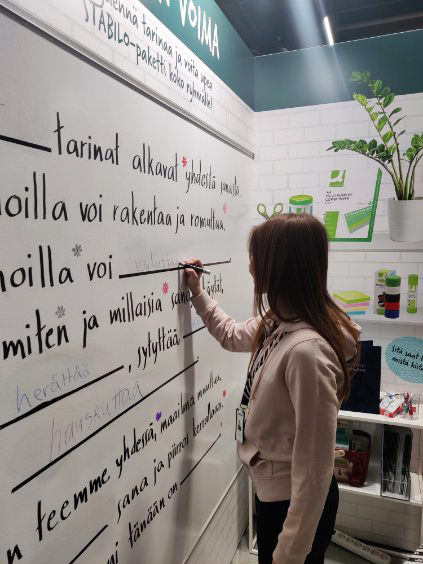 VOIMA
tarinaa ja voita upea
STABILO-paketti koko ryhmälle!
tarinat alkavat yhdestä sanasta.
noilla voi rakentaa ja romuttaa.
noilla voi vaikuttaa
miten ja millaisia sanoja löytät,
herättää, sytyttää
hauskuttaa
n teemme yhdessä, maailma muuttuu,
sana ja piirros kerrallaan.
mi tänään on
Sitä saat
mistä kiitä